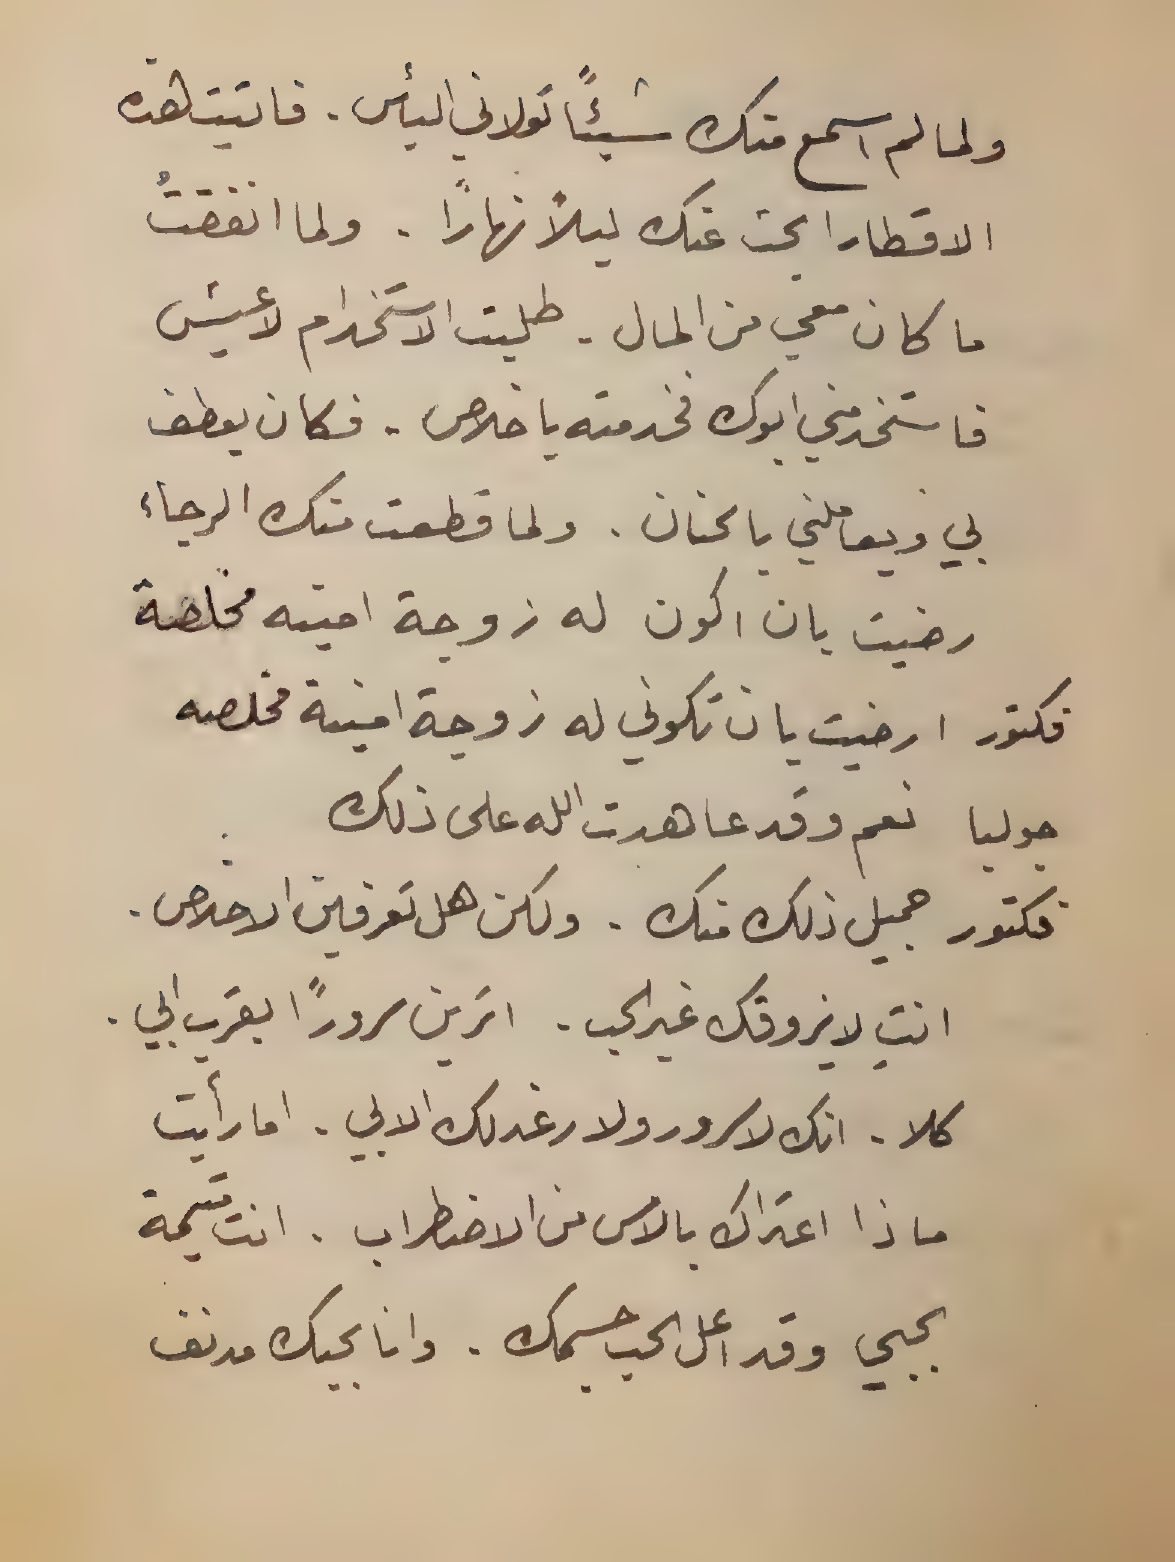 ولما لم اسمع منك شيئًا تولاني اليأس . فاتيت هذه
الاقطار ابحث عنك ليلاً نهارًا . ولما انفقتُ
ما كان معي من المال . طلبت الاستخدام لاعيش
فاستخدمني ابوك فخدمته باخلاص . فكان يعطف
بي ويعاملني بالحنان . ولما قطعت منك الرجاء
رضيت بان اكون له زوجة امينه مخلصة
فكتور ارضيت بان تكوني له زوجة امينة مخلصه
جوليا نعم وقد عاهدت الله على ذلك
فكتور جميل ذلك منك . ولكن هل تعرفين الاخلاص .
انتِ لا يروقك غير الحب . اترين سرورًا بقرب ابي .
كلا . انك لا سرور ولا رغد لك الا بي . اما رأيت
ماذا اعتراك بالامس من الاضطراب . انت متيمة
بحبي وقد اعل الحب جسمك . وانا بحبك مدنف